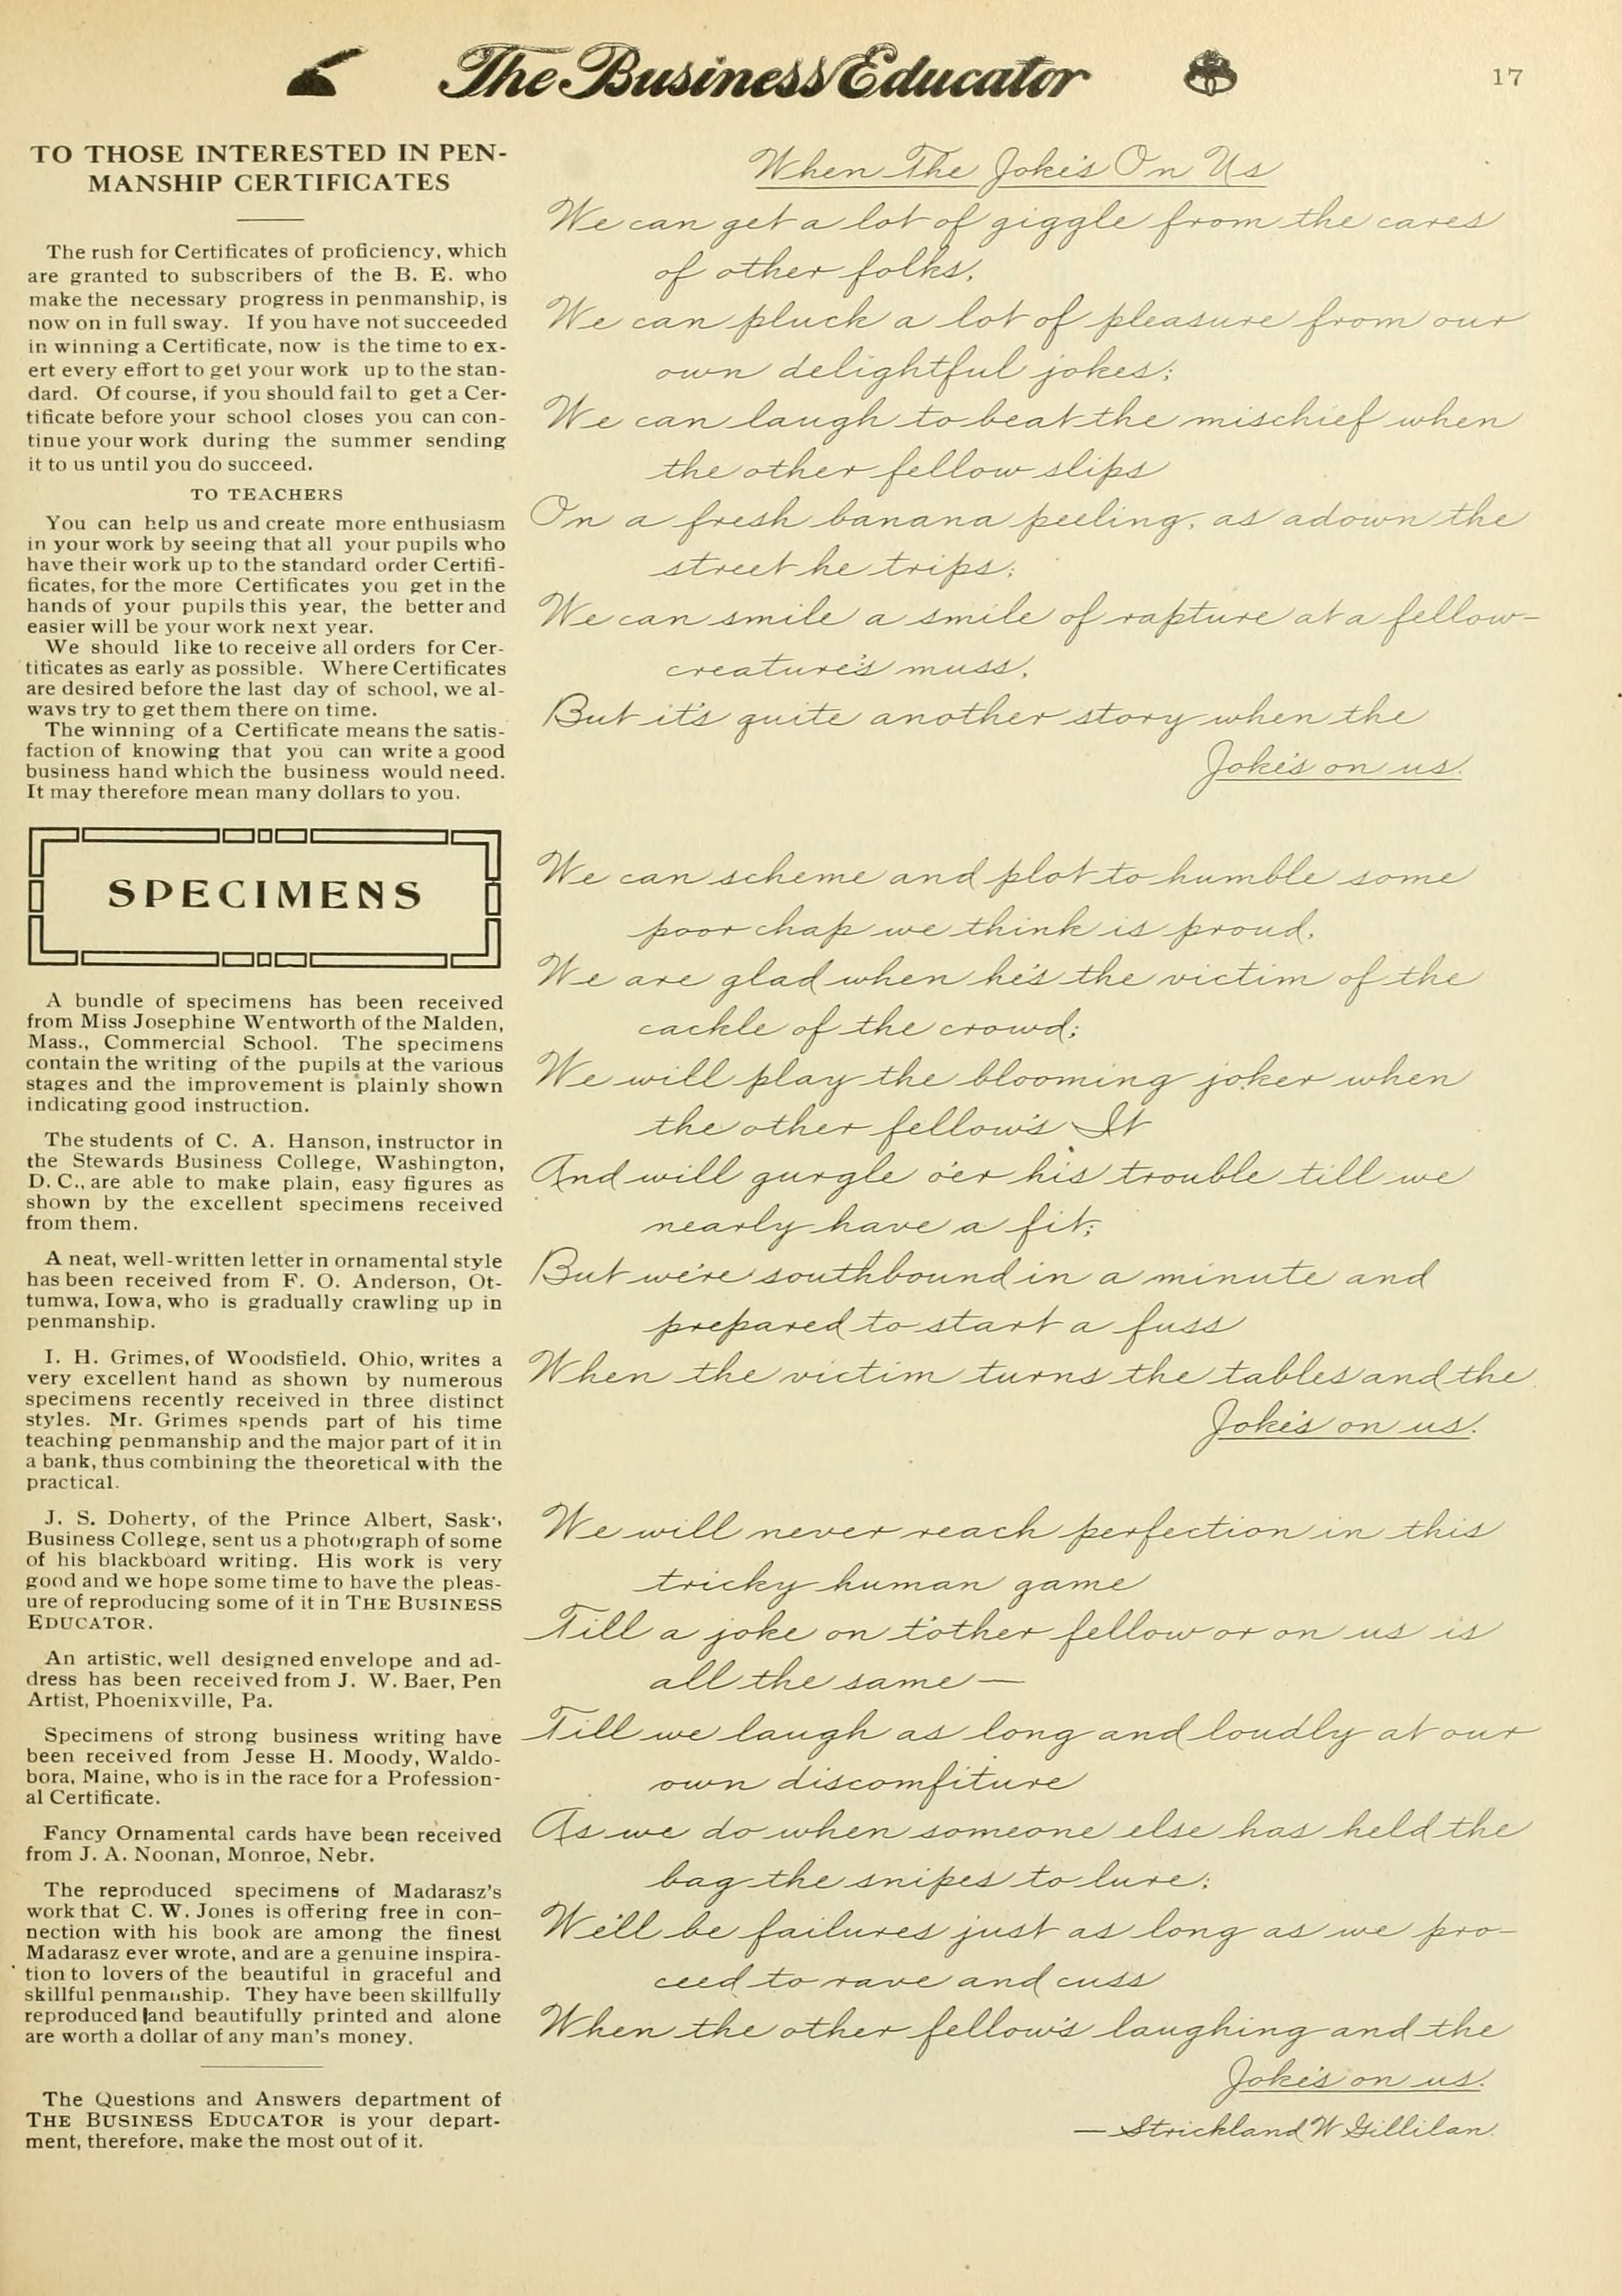 The Business Educator
17
TO THOSE INTERESTED IN PEN-
MANSHIP CERTIFICATES
The rush for Certificates of proficiency, which
are granted to subscribers of the B. E. who
make the necessary progress in penmanship, is
now on in full sway. If you have not succeeded
in winning a Certificate, now is the time to ex-
ert every effort to get your work up to the stan-
dard. Of course, if you should fail to get a Cer-
tificate before your school closes you can con-
tinue your work during the summer sending
it to us until you do succeed.
TO TEACHERS
You can help us and create more enthusiasm
in your work by seeing that all your pupils who
have their work up to the standard order Certifi-
ficates, for the more Certificates you get in the
hands of your pupils this year, the better and
easier will be your work next year.
We should like to receive all orders for Cer-
tificates as early as possible. Where Certificates
are desired before the last day of school, we al-
ways try to get them there on time.
The winning of a Certificate means the satis-
faction of knowing that you can write a good
business hand which the business would need.
It may therefore mean many dollars to you.
SPECIMENS
A bundle of specimens has been received
from Miss Josephine Wentworth of the Malden,
Mass., Commercial School. The specimens
contain the writing of the pupils at the various
stages and the improvement is plainly shown
indicating good instruction.
The students of C. A. Hanson, instructor in
the Stewards Business College, Washington,
D. C., are able to make plain, easy figures as
shown by the excellent specimens received
from them.
A neat, well-written letter in ornamental style
has been received from F. O. Anderson, Ot-
tumwa, Iowa, who is gradually crawling up in
penmanship.
I. H. Grimes, of Woodsfield, Ohio, writes a
very excellent hand as shown by numerous
specimens recently received in three distinct
styles. Mr. Grimes spends part of his time
teaching penmanship and the major part of it in
a bank, thus combining the theoretical with the
practical.
J. S. Doherty, of the Prince Albert, Sask.,
Business College, sent us a photograph of some
of his blackboard writing. His work is very
good and we hope some time to have the pleas-
ure of reproducing some of it in THE BUSINESS
EDUCATOR.
An artistic, well designed envelope and ad-
dress has been received from J. W. Baer, Pen
Artist, Phoenixville, Pa.
Specimens of strong business writing have
been received from Jesse H. Moody, Waldo-
bora, Maine, who is in the race for a Profession-
al Certificate.
Fancy Ornamental cards have been received
from J. A. Noonan, Monroe, Nebr.
The reproduced specimens of Madarasz's
work that C. W. Jones is offering free in con-
nection with his book are among the finest
Madarasz ever wrote, and are a genuine inspira-
tion to lovers of the beautiful in graceful and
skillful penmanship. They have been skillfully
reproduced and beautifully printed and alone
are worth a dollar of any man's money.
The Questions and Answers department of
THE BUSINESS EDUCATOR is your depart-
ment, therefore, make the most out of it.
When The Joke's On Us
We can get a lot of giggle from the cares
of other folks,
We can pluck a lot of pleasure from our
own delightful jokes;
We can laugh to beat the mischief when
the other fellow slips
On a fresh banana peeling, as adown the
street he trips;
We can smile a smile of rapture at a fellow-
creature's muss,
But it's quite another story when the
Joke's on us.
We can scheme and plot to humble some
poor chap we think is proud,
We are glad when he's the victim of the
cackle of the crowd;
We will play the blooming joker when
the other fellow's It
And will gurgle o'er his trouble till we
nearly have a fit;
But we're southbound in a minute and
prepared to start a fuss
When the victim turns the tables and the
Joke's on us.
We will never reach perfection in this
tricky human game
Till a joke on t'other fellow or on us is
all the same —
Till we laugh as long and loudly at our
own discomfiture
As we do when someone else has held the
bag the snipes to lure;
We'll be failures just as long as we pro-
ceed to rave and cuss
When the other fellow's laughing and the
Joke's on us.
— Strickland W Gillilan.